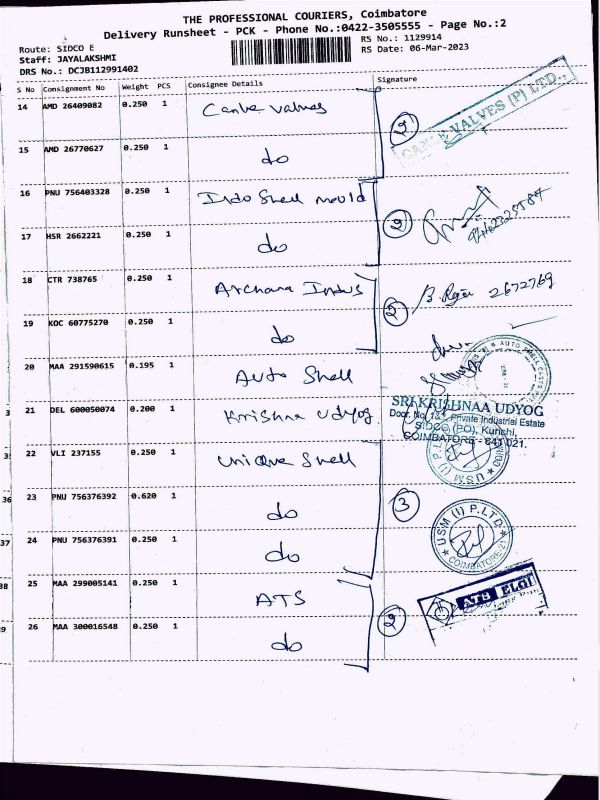 THE PROFESSIONAL COURIERS, Coimbatore
Delivery Runsheet - PCK - Phone No.:0422-3505555 - Page No.:2
Route: SIDCO E
RS No.: 1129914
Staff: JAYALAKSHMI
RS Date: 06-Mar-2023
DRS No.: DCJB112991402
S No Consignment No Weight PCS Consignee Details Signature
14 AMD 26409082 0.250 1 Canbe valves 2 VALVES (P) LTD.,
15 AMD 26770627 0.250 1 do
16 PNU 756403328 0.250 1 Indo Shell mould 2
17 HSR 2662221 0.250 1 do
18 CTR 738765 0.250 1 Archana Indus 2 2672769
19 KOC 60775270 0.250 1 do
20 MAA 291590615 0.195 1 Auto Shell
21 DEL 600050074 0.200 1 Krishna Udyog
SRI KRISHNAA UDYOG
Door. No. Private Industrial Estate
SIDCO (PO), Kurichi,
COIMBATORE - 641 021.
22 VLI 237155 0.250 1 Unique Shell
23 PNU 756376392 0.620 1 do 3
USM (I) P.LTD
COIMBATORE-21
24 PNU 756376391 0.250 1 do
25 MAA 299005141 0.250 1 ATS
26 MAA 300016548 0.250 1 do 2
ATS ELGI